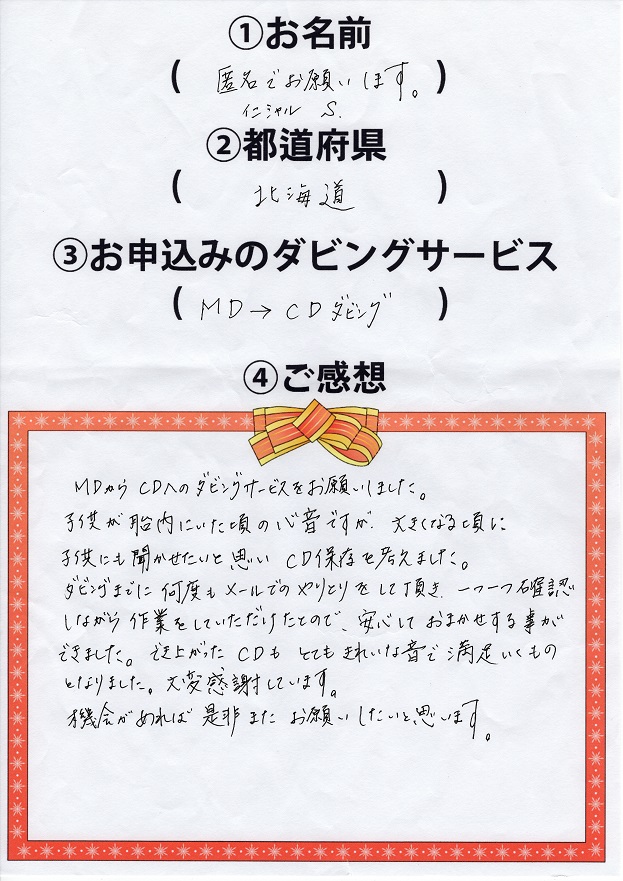 ①お名前
(匿名でお願いします。)
イニシャル S.
②都道府県
(北海道)
③お申込みのダビングサービス
(MD→CDダビング)
④ご感想
MDからCDへのダビングサービスをお願いしました。
子供が胎内にいた頃の心音ですが、大きくなる頃に
子供にも聞かせたいと思い CD保存を考えました。
ダビングまでに何度もメールでのやりとりをして頂き、一つ一つ確認
しながら作業をしていただけたので、安心しておまかせする事が
できました。でき上がったCDもとてもきれいな音で満足いくもの
となりました。大変感謝しています。
機会があれば是非またお願いしたいと思います。